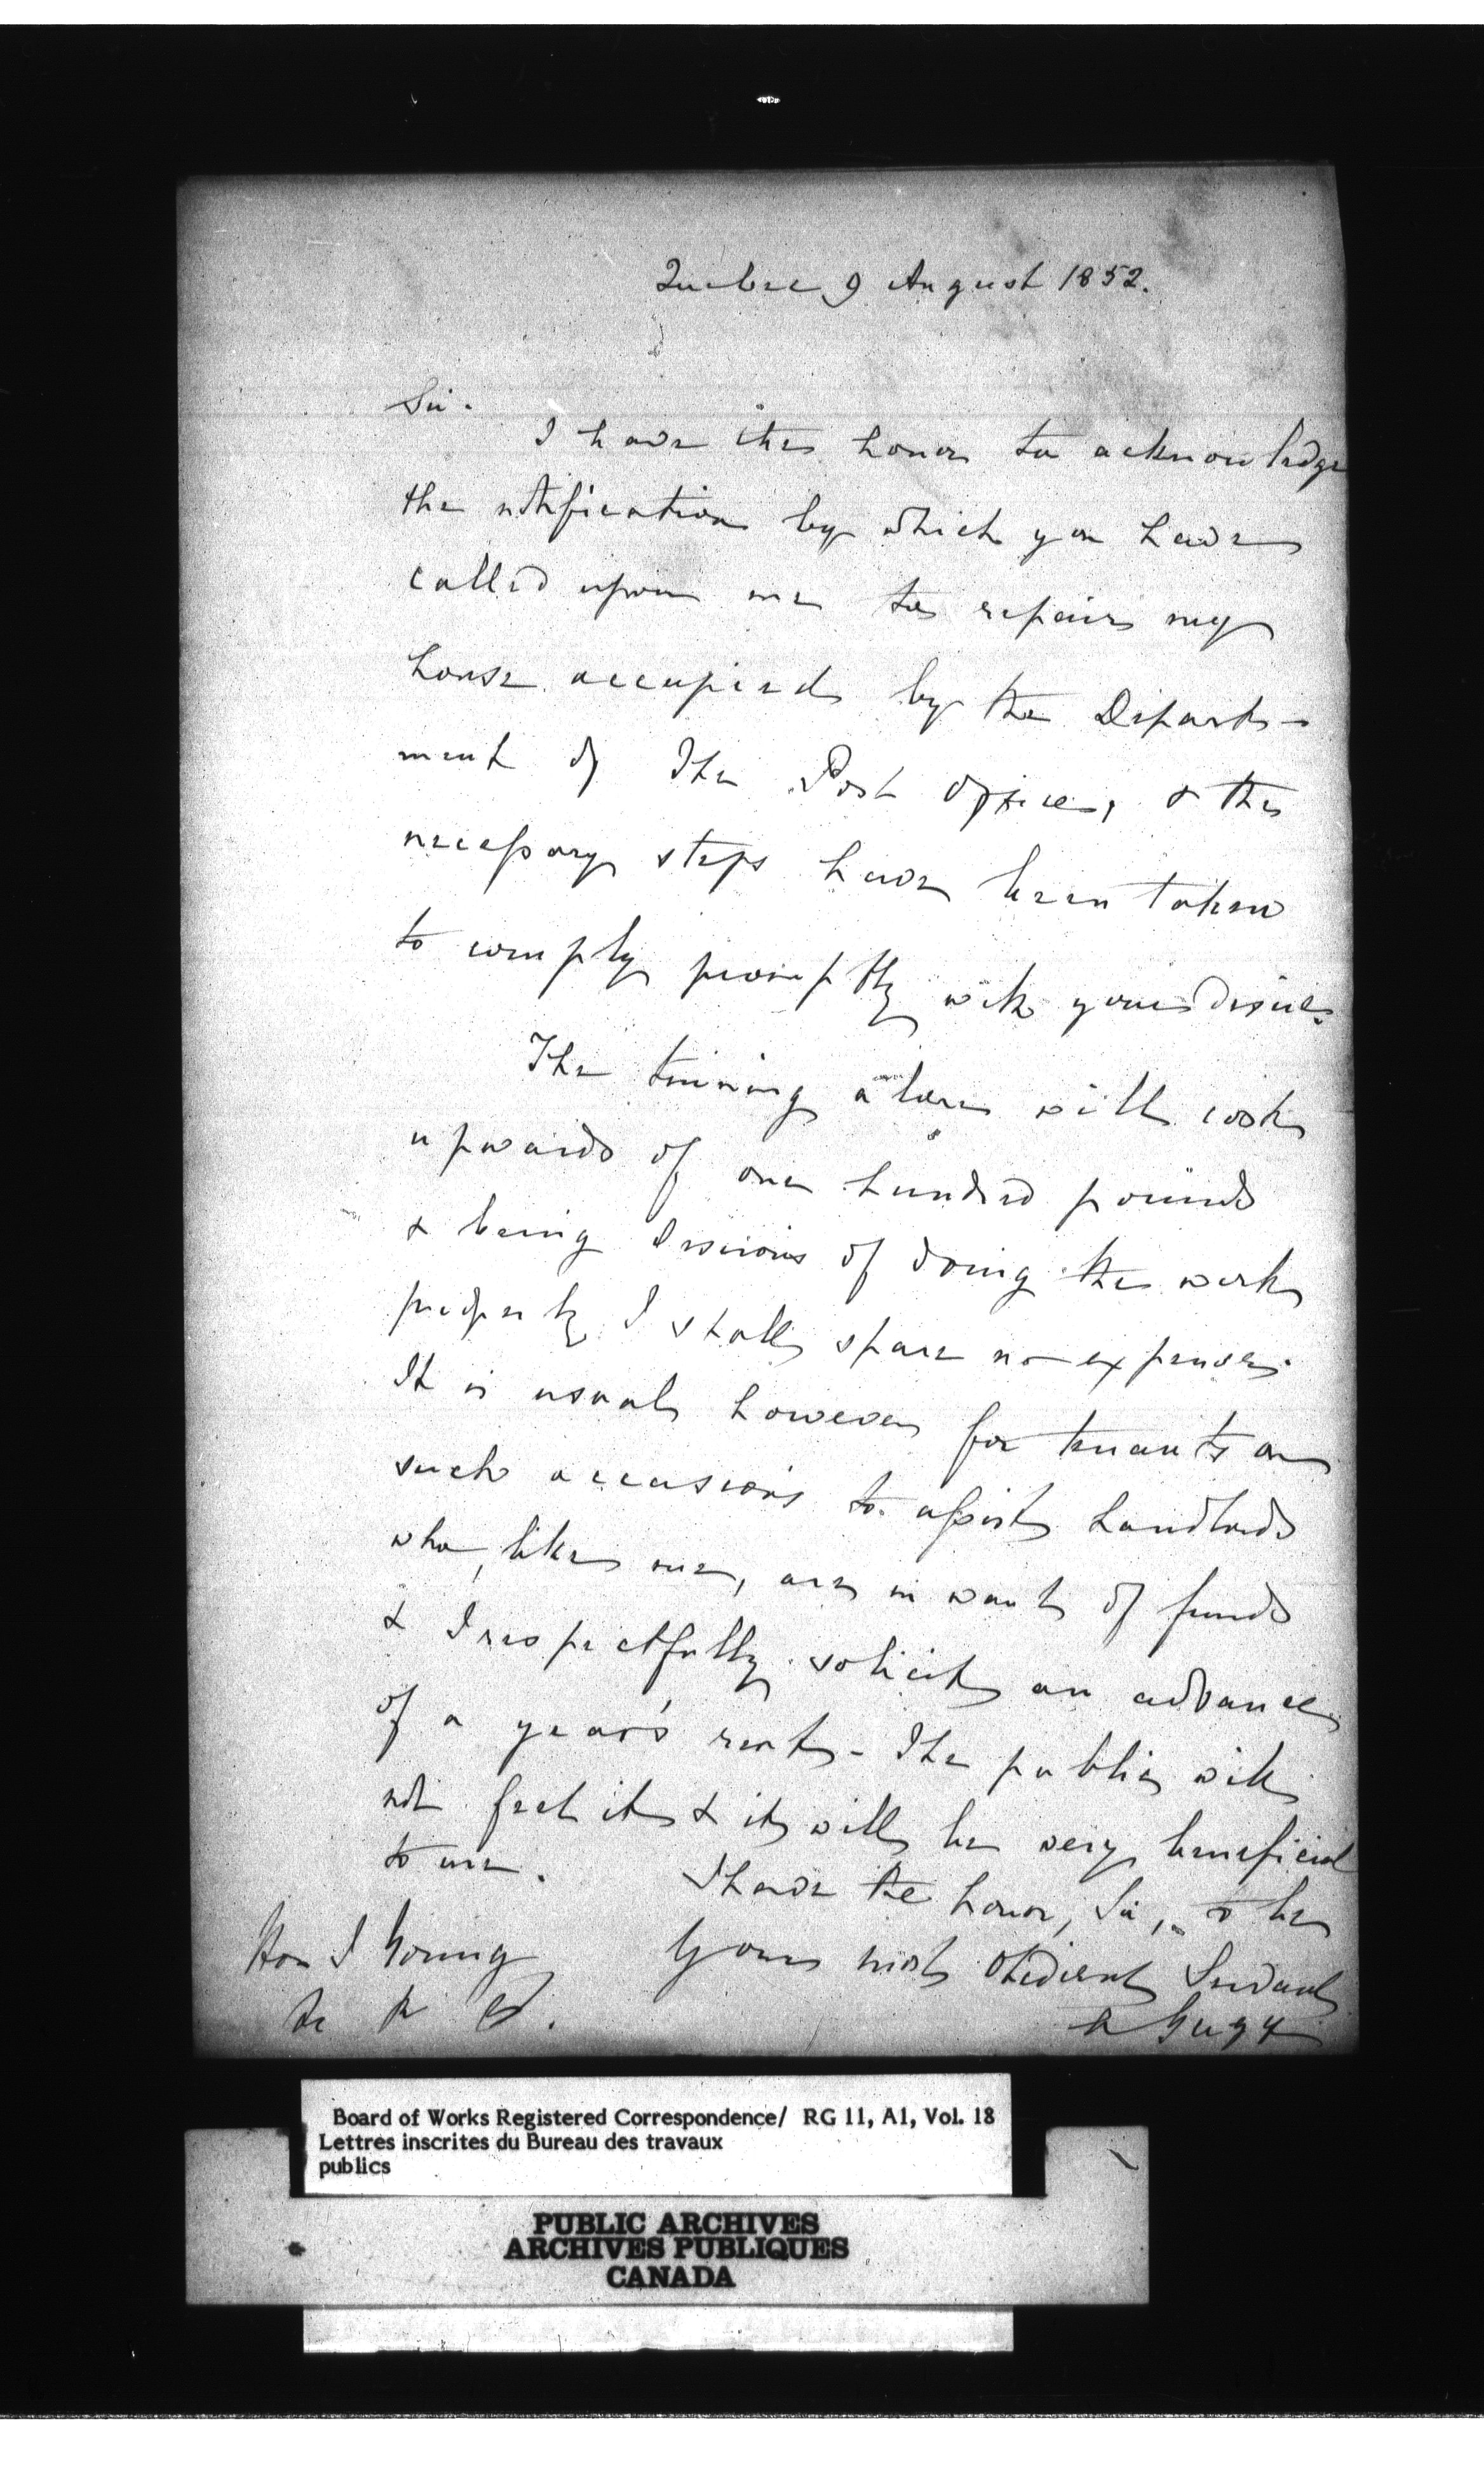 Quebec 9 August 1852.
Sir.
I have the honor to acknowledge
the notification by which you have
called upon me to repair my
house occupied by the Depart-
ment of the Post Office, & the
necessary steps have been taken
to comply promptly with your desire.
The tinning alone will cost
upwards of one hundred pounds
& being desirous of doing the work
properly I shall spare no expense.
It is usual however for tenants on
such occasions to assist Landlords
who, like me, are in want of funds
& I respectfully solicit an advance
of a year's rent - The public will
not feel it & it will be very beneficial
to me.
I have the honor, Sir, to be
Your most obedient Servant
A Gugy
Hon J Young
Board of Works Registered Correspondence/ RG 11, A1, Vol. 18
Lettres inscrites du Bureau des travaux
publics
PUBLIC ARCHIVES
ARCHIVES PUBLIQUES
CANADA